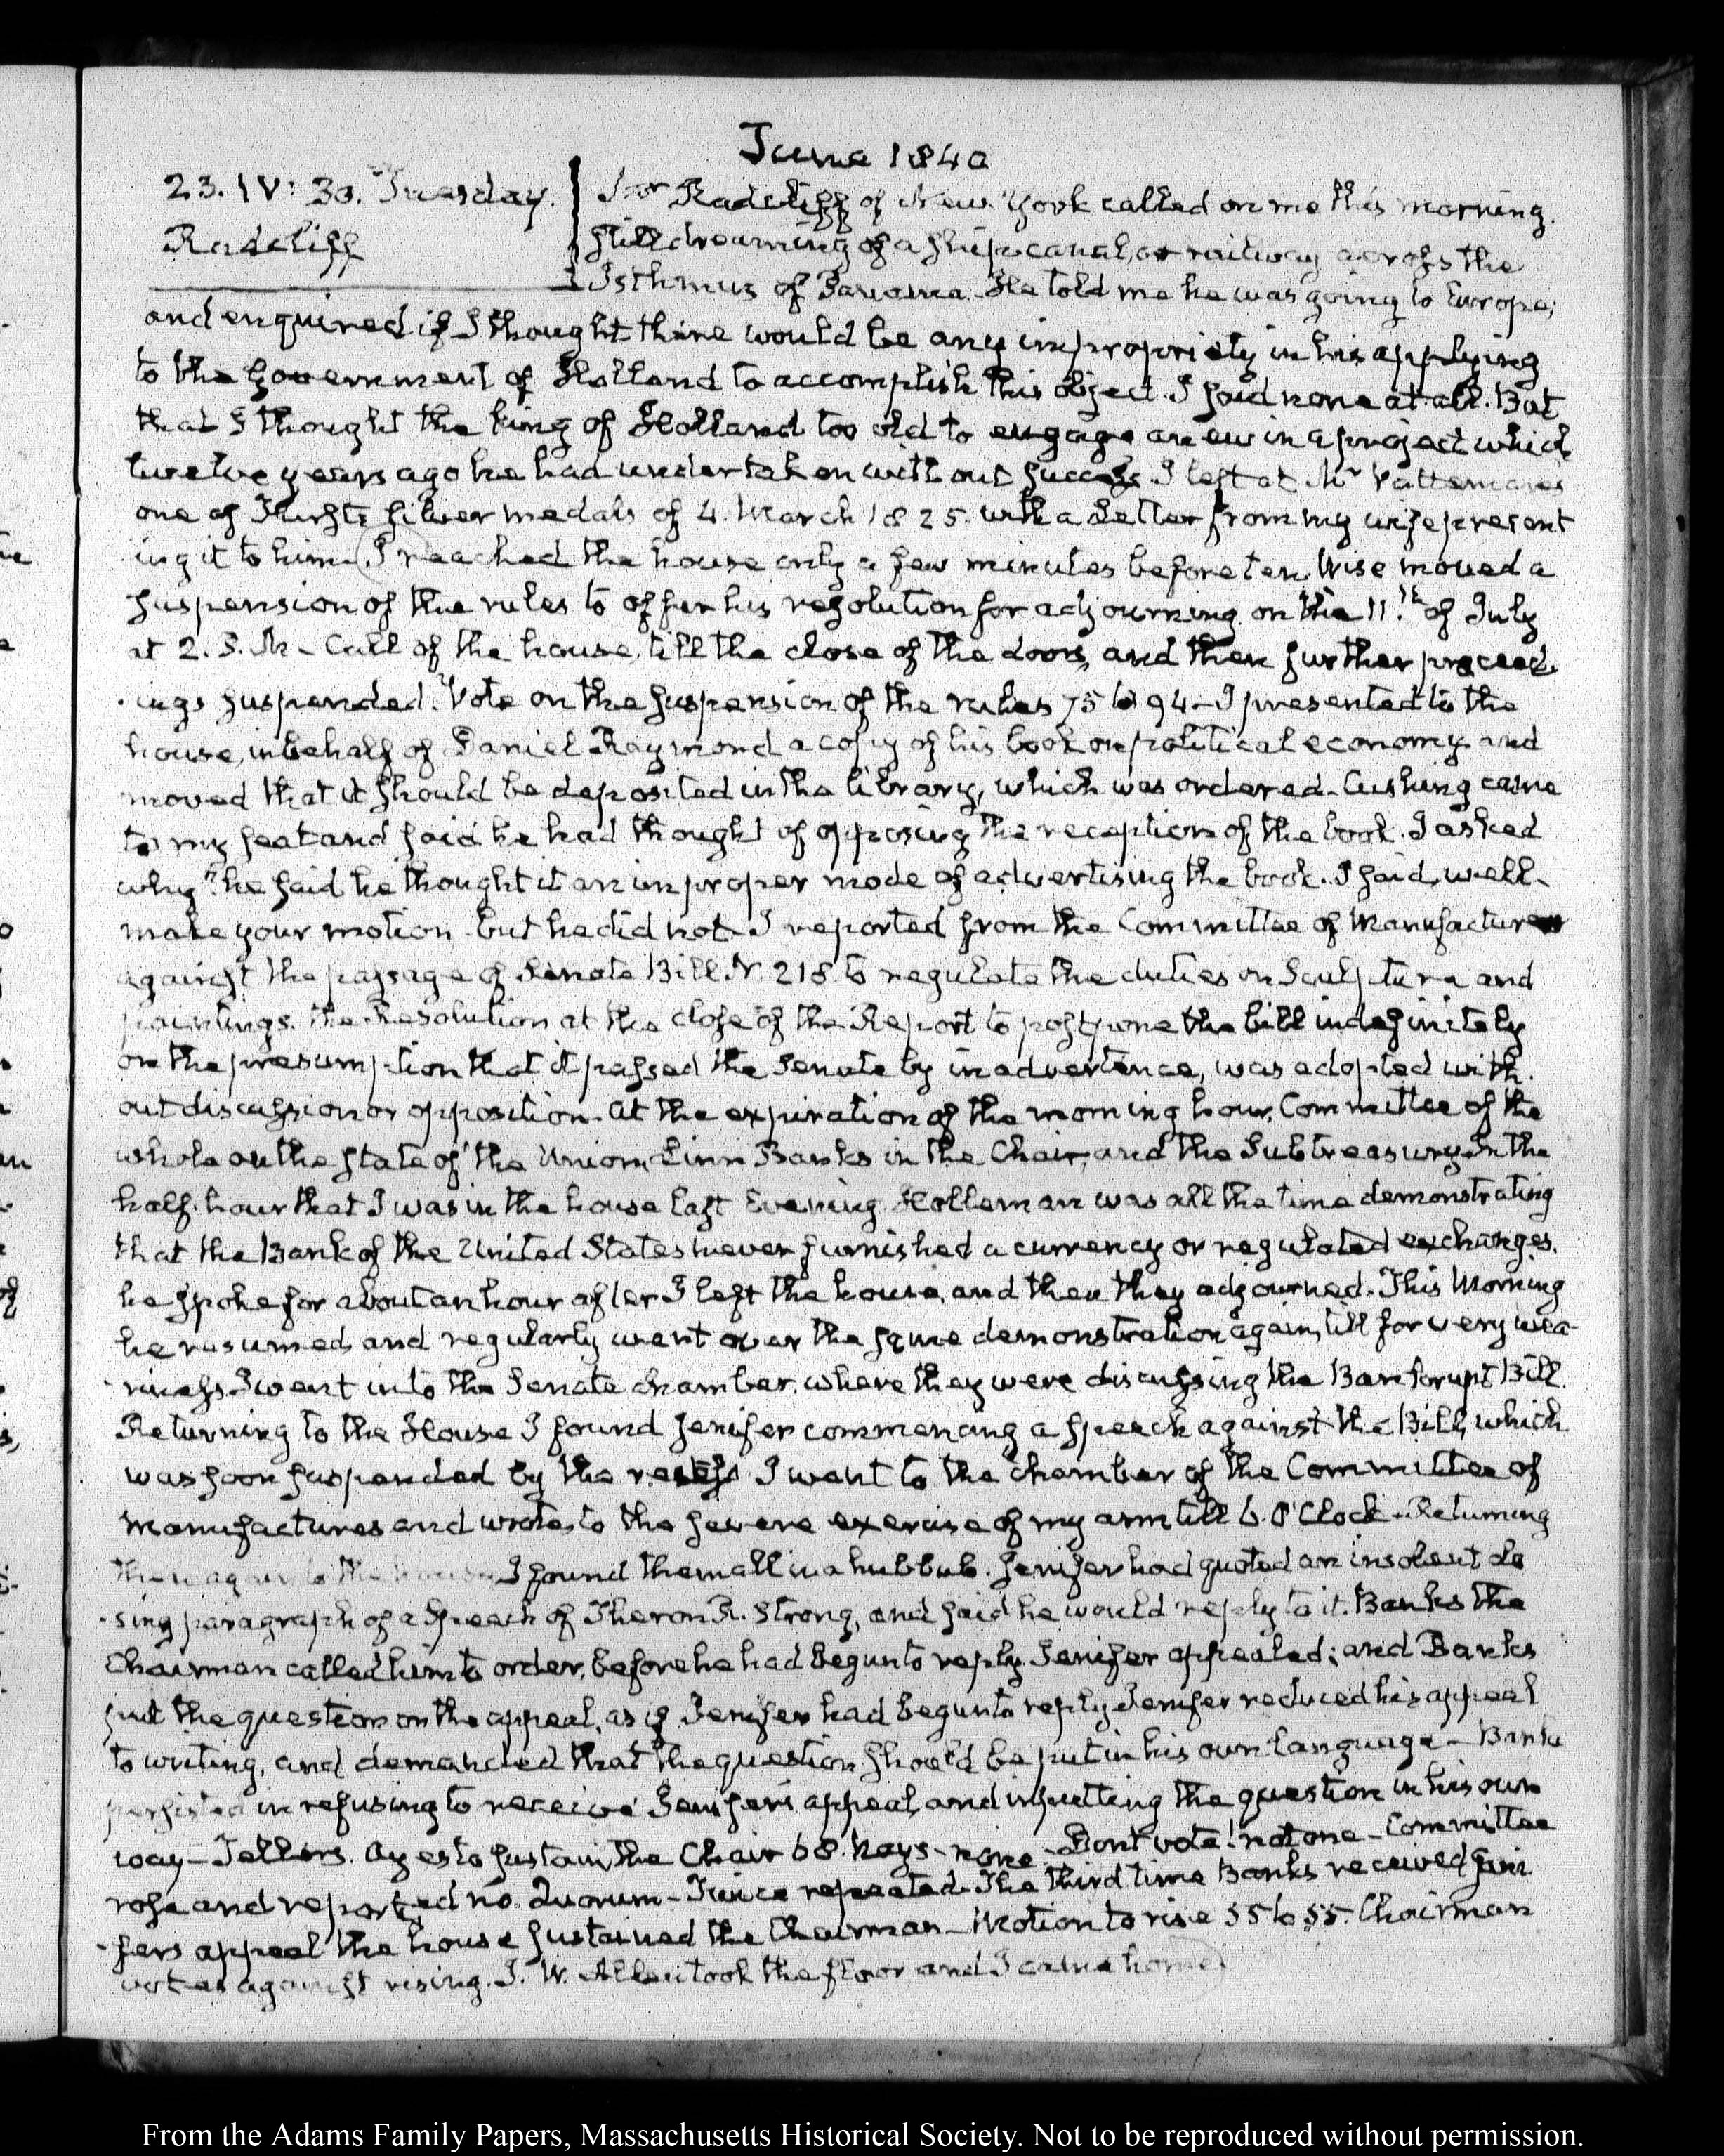 June 1840
23. IV: 30. Tuesday.
Radcliff
Mr Radcliff of New York called on me this morning.
still dreaming of a ship canal, or railway across the
Isthmus of Panama. He told me he was going to Europe;
and enquired if I thought there would be any impropriety in his applying
to the Government of Holland to accomplish this object. I said none at all. But
that I thought the king of Holland too old to engage anew in a project which
twelve years ago he had undertaken without success. I left at Mr Vattemare's
one of Furst's silver medals of 4. March 1825. with a Letter from my wife present
ing it to him. I reached the house only a few minutes before ten. Wise moved a
suspension of the rules to offer his resolution for adjourning on the 11th of July
at 2. P. M. - Call of the house, till the close of the doors, and then further proceed-
ings suspended. Vote on the suspension of the rules 75 to 94 - I presented to the
house, in behalf of Daniel Raymond a copy of his book on political economy and
moved that it should be deposited in the library, which was ordered - Cushing came
to my seat and said he had thought of opposing the reception of the book. I asked
why? he said he thought it an improper mode of advertising the book. I said, well -
make your motion but he did not. I reported from the Committee of Manufactures
against the passage of Senate Bill N. 218 to regulate the duties on Sculpture and
paintings. The Resolution at the close of the Report to postpone the bill indefinitely
on the presumption that it passed the Senate by inadvertence, was adopted with-
out discussion or opposition - At the expiration of the morning hour, Committee of the
whole on the state of the Union, Linn Banks in the Chair, and the Subtreasury. In the
half-hour that I was in the house last Evening Holleman was all the time demonstrating
that the Bank of the United States never furnished a currency or regulated exchanges.
he spoke for about an hour after I left the house, and then they adjourned. This Morning
he resumed and regularly went over the same demonstration again, till for very wea-
riness I went into the Senate chamber, where they were discussing the Bankrupt Bill.
Returning to the House I found Jenifer commencing a speech against the Bill, which
was soon suspended by the recess I went to the chamber of the Committee of
Manufactures and wrote, to the severe exercise of my arm till 6 O'Clock - Returning
then again to the house I found them all in a hubbub. Jenifer had quoted an insolent clo
sing paragraph of a Speech of Theron R. Strong, and said he would reply to it. Banks the
Chairman called him to order, before he had begun to reply. Jenifer appealed; and Banks
put the question on the appeal, as if Jenifer had begun to reply. Jenifer reduced his appeal
to writing, and demanded that the question should be put in his own language - Banks
persisted in refusing to receive Jenifer's appeal, and in putting the question in his own
way - Tellers. Ayes to sustain the Chair 68. Nays - none - Don't vote! not one - Committee
rose and reported no Quorum - Twice repeated - The third time Banks received Jeni
fers appeal the house sustained the Chairman - Motion to rise 55 to 55. Chairman
votes against rising. J. W. Allen took the floor and I came home
From the Adams Family Papers, Massachusetts Historical Society. Not to be reproduced without permission.